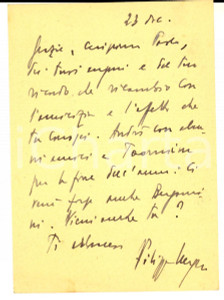 23 dic.
Grazie, carissimo Paolo,
dei tuoi auguri e del tuo
ricordo che ricambio con
l'amicizia e l'affetto che
tu conosci. Andrò con alcu-
ni amici a Taormina
per la fine dell'anno: ci
sarà forse anche
Vieni anche tu?
Ti abbraccio